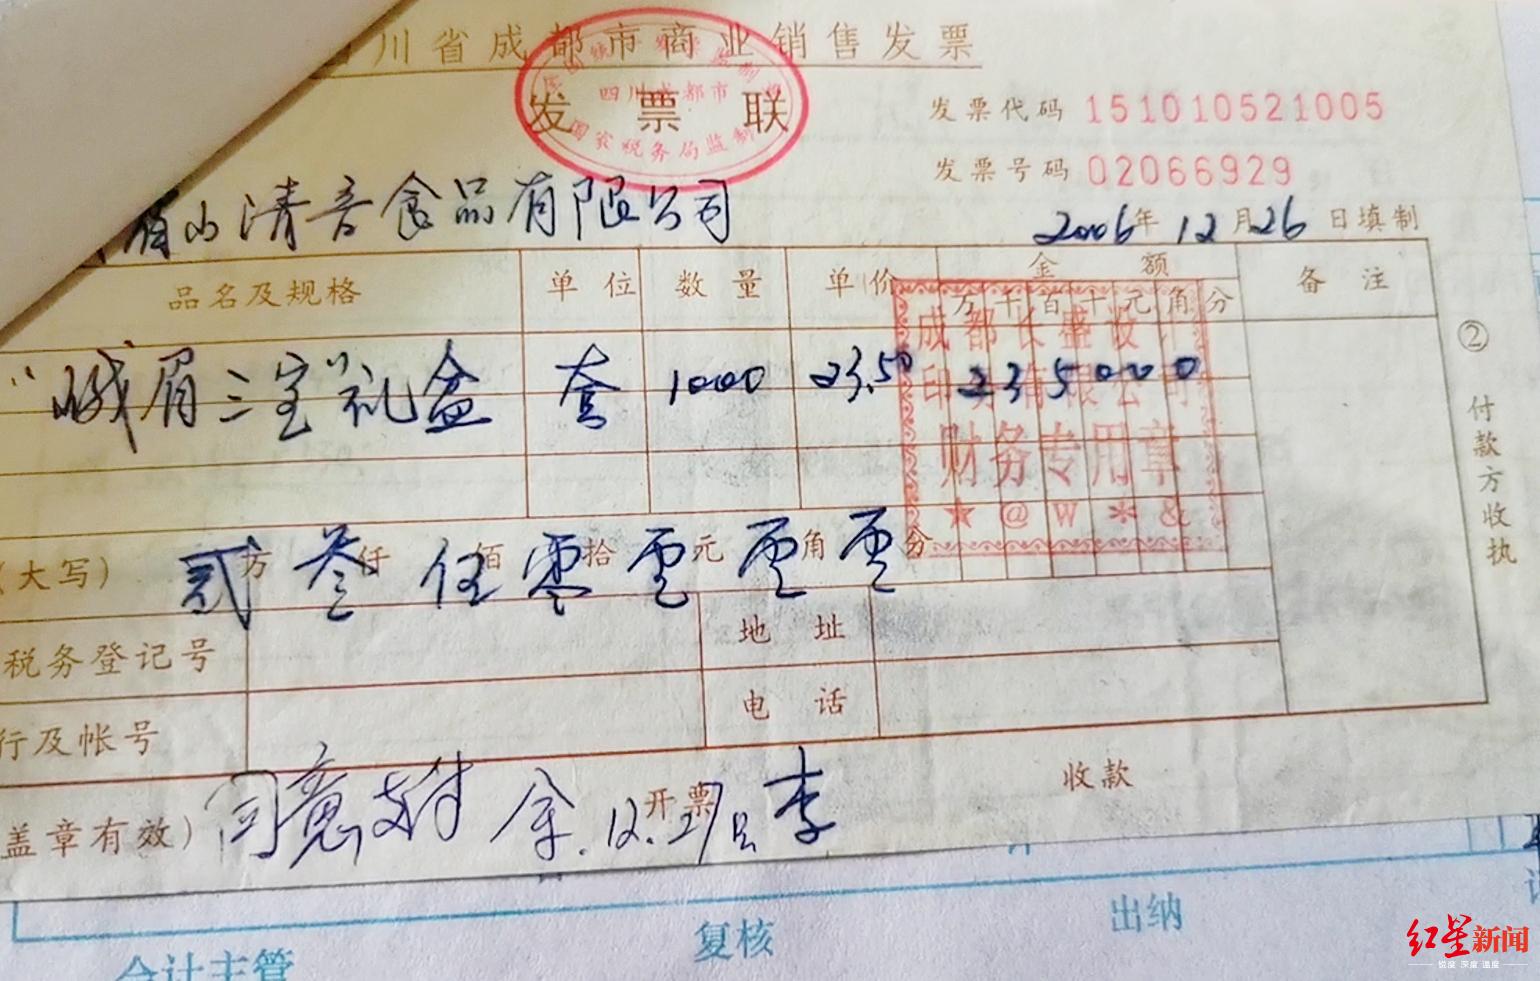 川省成都市商业销售发票
发票联
四川成都市
国家税务局监制
发票代码 151010521005
发票号码 02066929
眉山清音食品有限公司
2006年 12月26日填制
品名及规格 单位 数量 单价 金额 备注
万 千 百 十 元 角 分
“峨眉三宝”礼盒 套 1000 23.50 2350000
成都长盛彩
印务有限公司
财务专用章
★ @ W * &
②付款方收执
(大写) 贰万叁仟伍佰零拾零元零角零分
税务登记号 地址
行及帐号 电话
盖章有效) 同意支付 余.12.27日 开票 李 收款
会计主管 复核 出纳
红星新闻
悦度 深度 温度